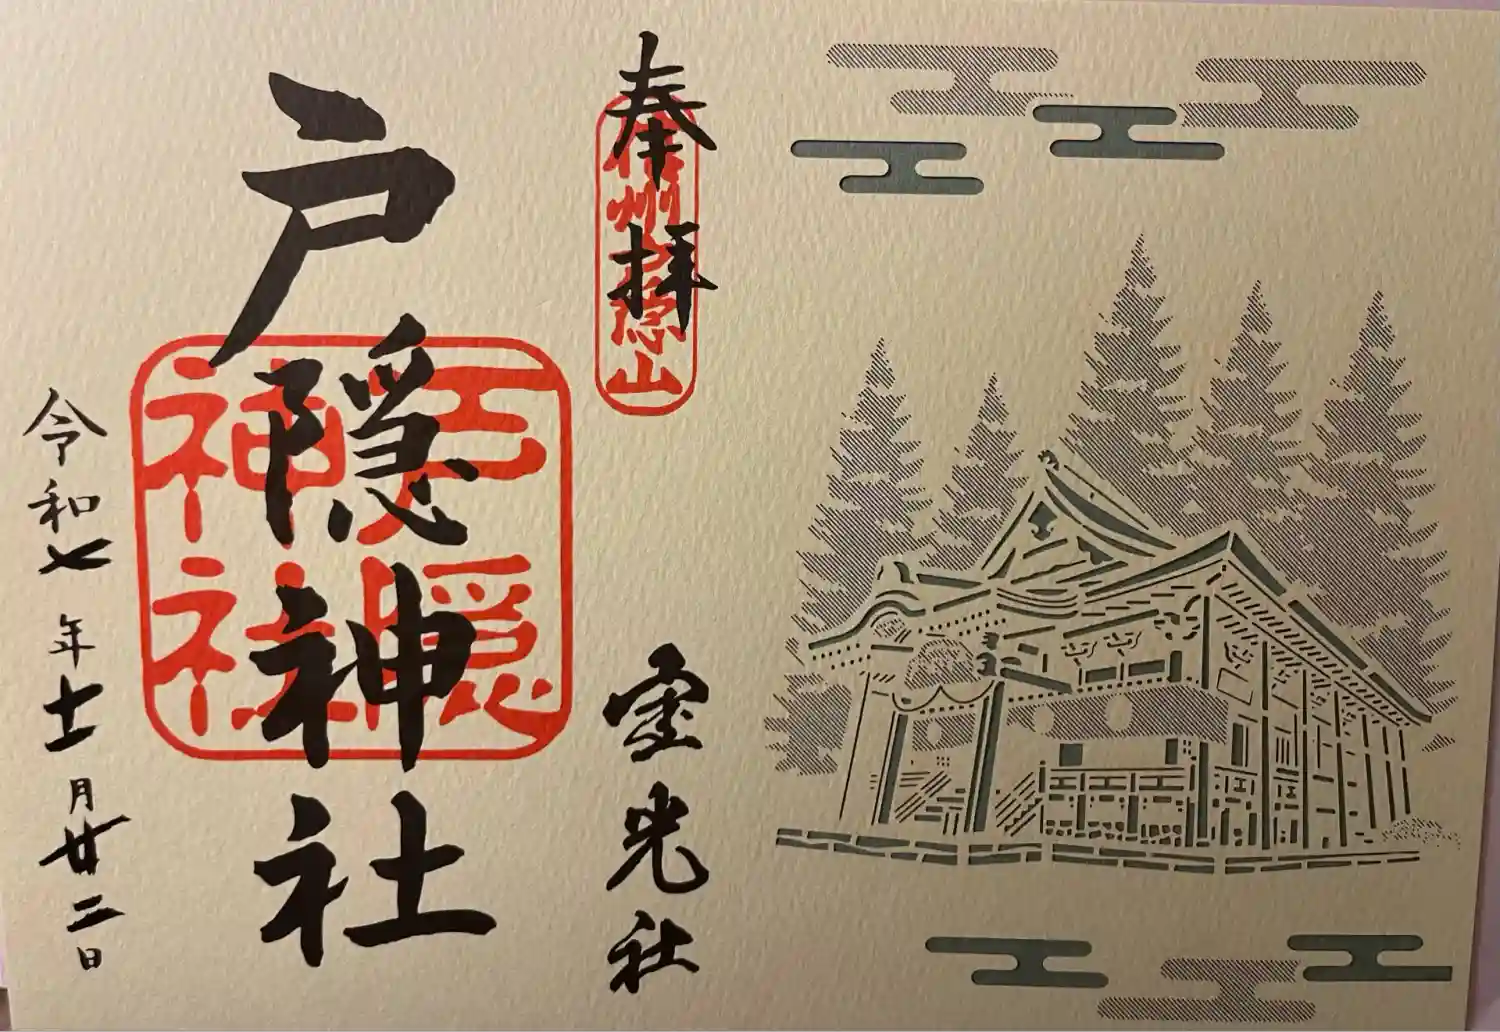 奉拝
信州戸隠山
宝光社
戸隠神社
戸隠
神社
令和七年十一月廿二日